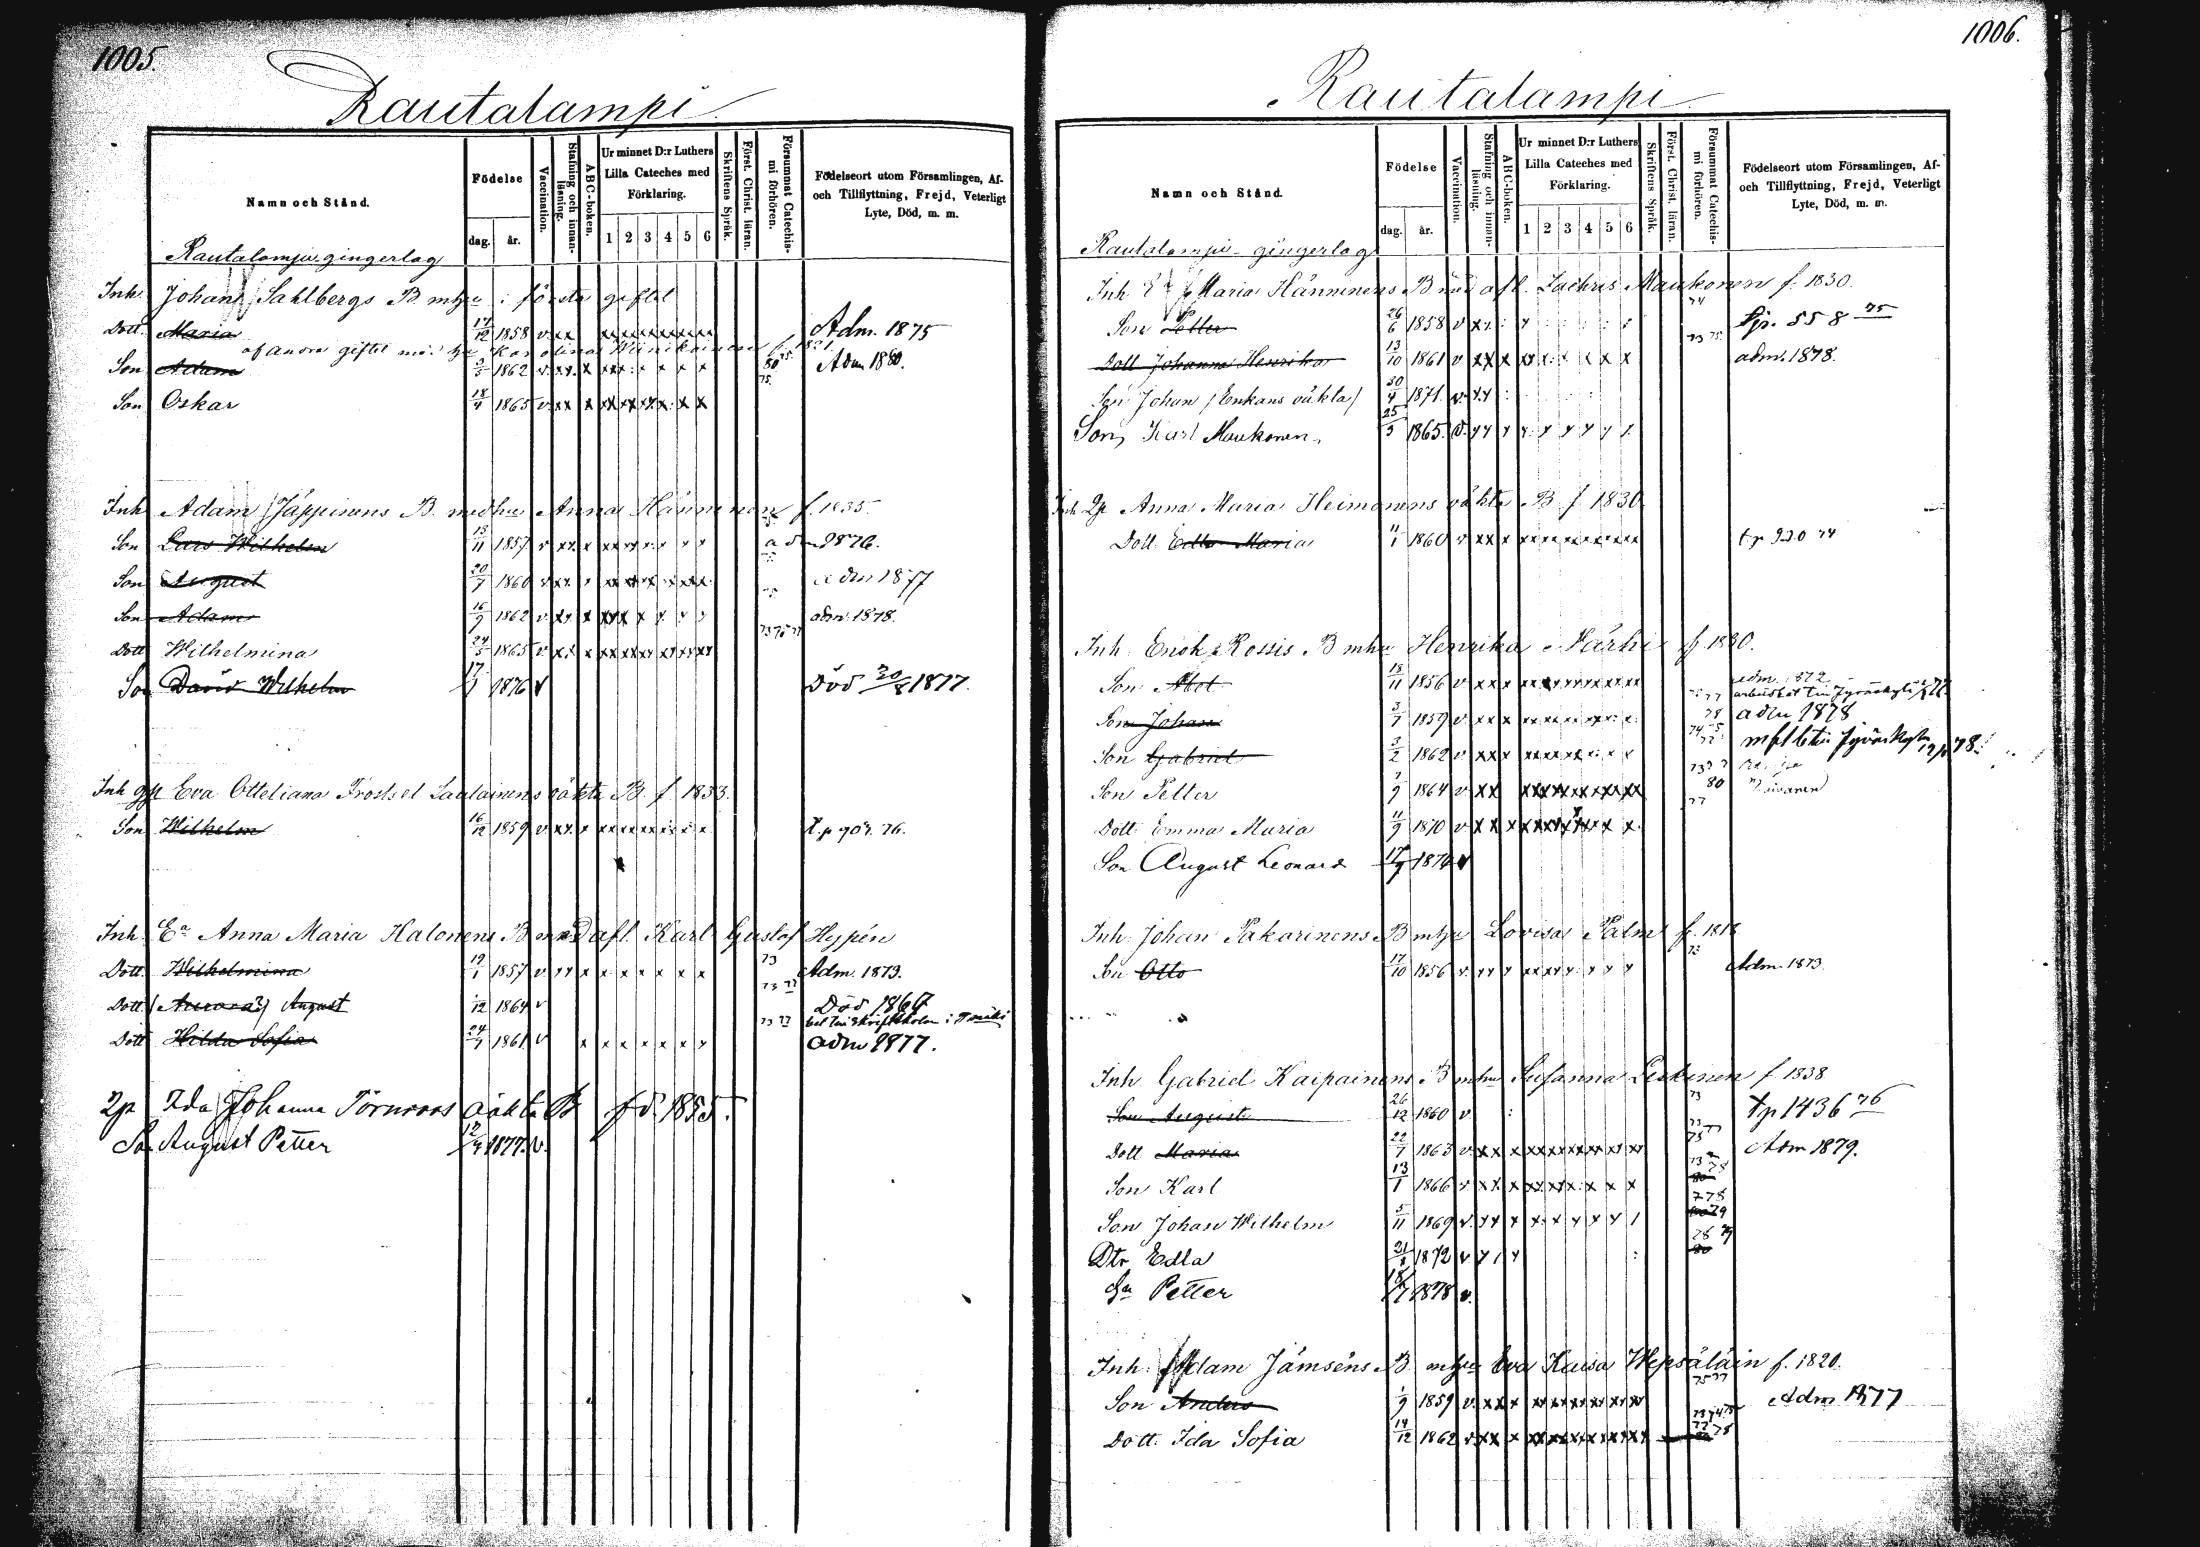 1005.
Rautalampi
Namn och Stånd.
Födelse
dag. år.
Vaccination.
Stafning och innanläsning.
ABC-boken.
Ur minnet D:r Luthers Lilla Cateches med Förklaring.
1 2 3 4 5 6
Skriftens Språk.
Först. Christ. läran.
Försummat Catechismi förhören.
Födelseort utom Församlingen, Af- och Tillflyttning, Frejd, Veterligt Lyte, Död, m. m.
Rautalampi gingerlag
Inh. Johan Sahlbergs B mhu i första giftet
Dott. Maria 17/12 1858 v xx Adm. 1875
af andra giftet med hu Karolina
Son Adam 1862 v xx x Adm 1880.
Son Oskar 18/4 1865 v xx x
Inh Adam Jäppinens B. med hu Anna Hänninen f. 1835
Son Lars Wilhelm 13/11 1857 v xx x adm 1876.
Son August 20/7 1860 v xx adm 1877
Son Adam 16/9 1862 v xx x adm 1878.
Dott Wilhelmina 24/5 1865 v xx x
Son David Wilhelm 17/1 1876 v Död 20/8 1877.
Inh gp Eva Otteliana Trostsel Laulainens oäkta B. f. 1833.
Son Wilhelm 16/12 1859 v xx x t.p 907. 76.
Inh. Ea Anna Maria Halonens B med afl. Karl Gustaf Hypén
Dott. Wilhelmina 19/1 1857 v Adm. 1873.
Dott. (Aurora?) August 12 1864 v Död 1867
Dott Hilda Sofia 24/7 1861 v adm 1877.
2p Ida Johanna Törnroos oäkta B fd. 1855.
Son August Petter 12/4 1877. v.
1006.
Rautalampi
Namn och Stånd.
Födelse
dag. år.
Vaccination.
Stafning och innanläsning.
ABC-boken.
Ur minnet D:r Luthers Lilla Cateches med Förklaring.
1 2 3 4 5 6
Skriftens Språk.
Först. Christ. läran.
Försummat Catechismi förhören.
Födelseort utom Församlingen, Af- och Tillflyttning, Frejd, Veterligt Lyte, Död, m. m.
Rautalampi gingerlag
Inh Ea Maria Hänninens B med afl. Zachris Maukonen f. 1830.
Son Petter 26/6 1858 v tp. 558 75
Dott Johanna Henrika 13/10 1861 v xx x adm. 1878.
Son Johan (Enkans oäkta) 30/4 1871. v.
Son, Karl Maukonen, 25/3 1865. v.
Inh 2p Anna Maria Heimonens oäkta B. f 1830
Dott. Edla Maria 11/1 1860 v xx x tp 920 74
Inh. Erick Rossis B mhu Henrika Närhi f. 1830.
Son Abel 18/11 1856 v xx x adm. 1872
Son Johan 3/7 1859 v xx x 78 adm 1878
Son Gabriel 3/2 1862 v xx x
Son Petter 7/9 1864 v xx 80
Dott Emma Maria 11/9 1870 v xx x
Son August Leonard 17/7 1874 v
Inh. Johan Pakarinens B mhu Lovisa Palm f. 1818
Son Otto 17/10 1856 v Adm. 1873
Inh Gabriel Kaipainens B mhu Susanna Leskinen f 1838
Son August 26/12 1860 v. tp 1436 76
Dott Maria 22/7 1863 v. xx x Adm 1879.
Son Karl 13/1 1866 v xx x
Son Johan Wilhelm 5/11 1869 v.
Dtr Edla 21/8 1872 v
Son Petter 18/7 1878 v.
Inh. Adam Jämséns B mhu Eva Kaisa Wepsäläin f. 1820.
Son Anders 1/9 1859 v. xx x Adm 1877
Dott. Ida Sofia 14/12 1862 v. xx x